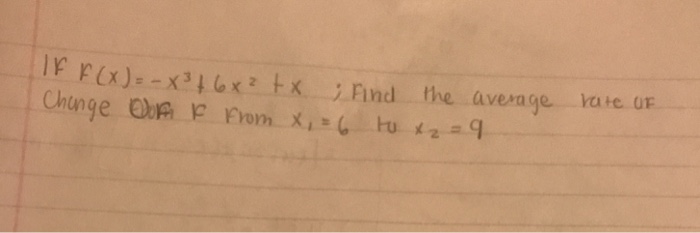 IF F(x) = -x³ + 6x² + x ; Find the average rate OF
Change F From x₁ = 6 to x₂ = 9